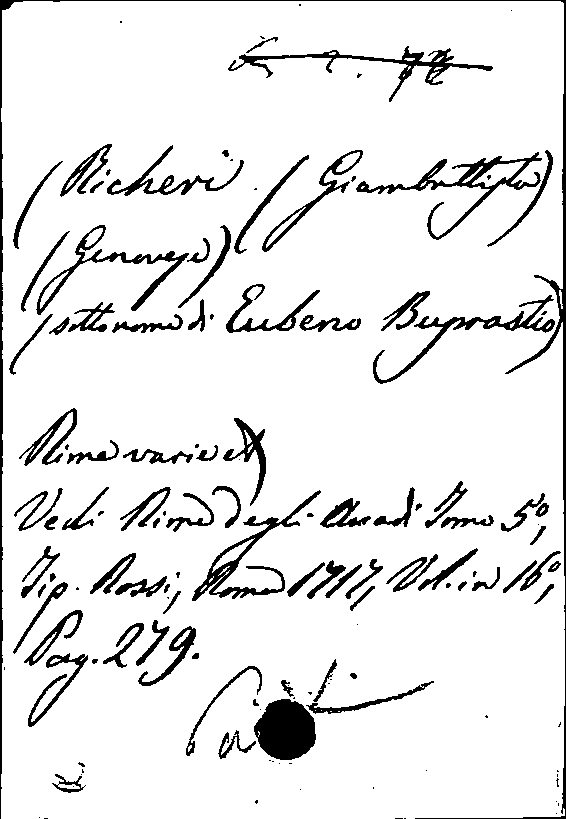 (Richeri (Giambattista)
(Genovese)
(sotto nome di Eubeno Buprastio)
Rime varie
Vedi Rime degli Arcadi Tomo 5º,
Tip. Rossi, Roma 1717, Vol. in 16º,
Pag. 279.